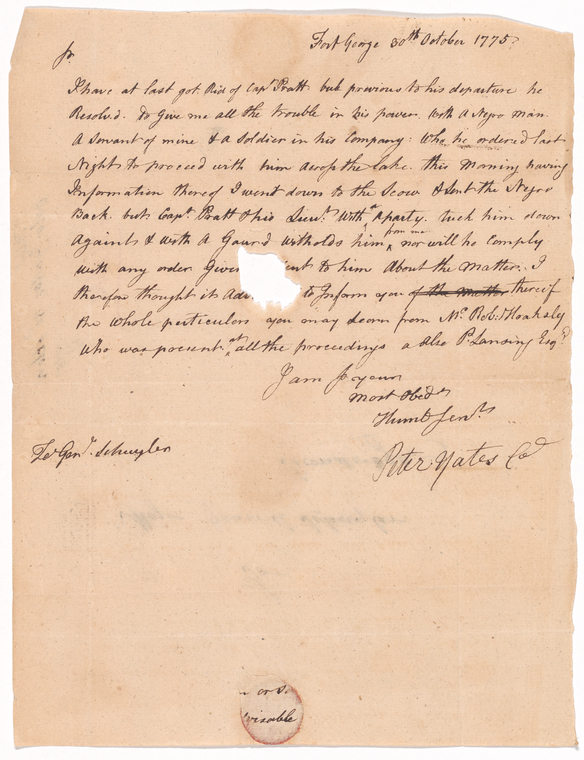 Fort George 30th October 1775
Sr
I have at last got Rid of Capt Pratt but previous to his departure he
Resolved to Give me all the trouble in his power. With A Negro man
A Servant of mine & a Soldier in his Company: Who he ordered last
Night to proceed with him across the Lake. this Morning having
Information thereof I went down to the Scow & Sent the Negro
Back. but Capt Pratt & his Lieut With a party. tuck him down
Againts & with A Gaurd witholds him from me nor will he Comply
with any order Given to him About the Matter. I
therefore thought it Adv to Inform you of the matter thereof
the whole perticulers you may from Mr Robt
who was present at all the proceedings a Also P. Lansing Esqr
I am Sr your
Most Obedt
Humb Servt
To Genl Schuyler
Peter Yates Cod
or S
visable